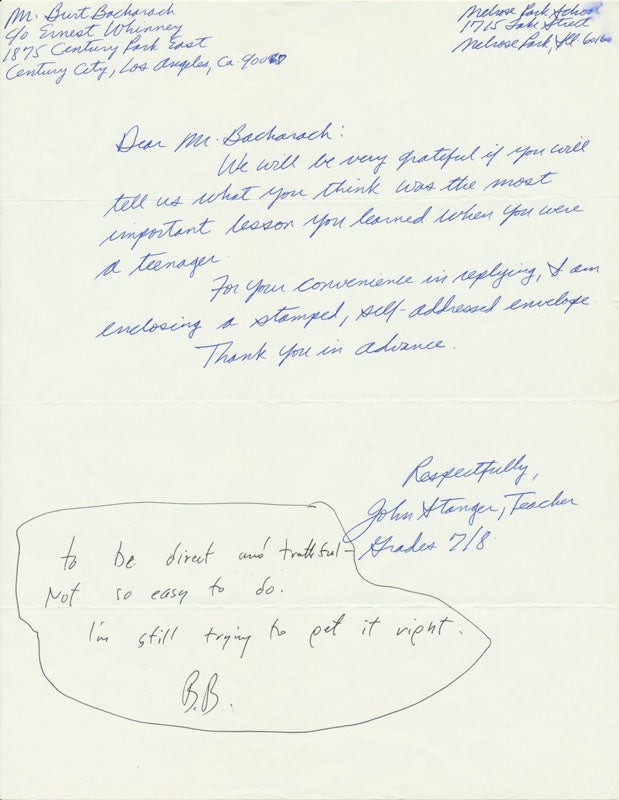 Mr. Burt Bacharach
c/o Ernest Whinney
1875 Century Park East
Century City, Los Angeles, Ca. 90067
Melrose Park School
1715 Lake Street
Melrose Park, Ill 60160
Dear Mr. Bacharach:
We will be very grateful if you will
tell us what you think was the most
important lesson you learned when you were
a teenager.
For your convenience in replying, I am
enclosing a stamped, self-addressed envelope.
Thank you in advance.
Respectfully,
John Stanger, Teacher
Grades 7/8
to be direct and truthful-
Not so easy to do.
I'm still trying to get it right.
B.B.